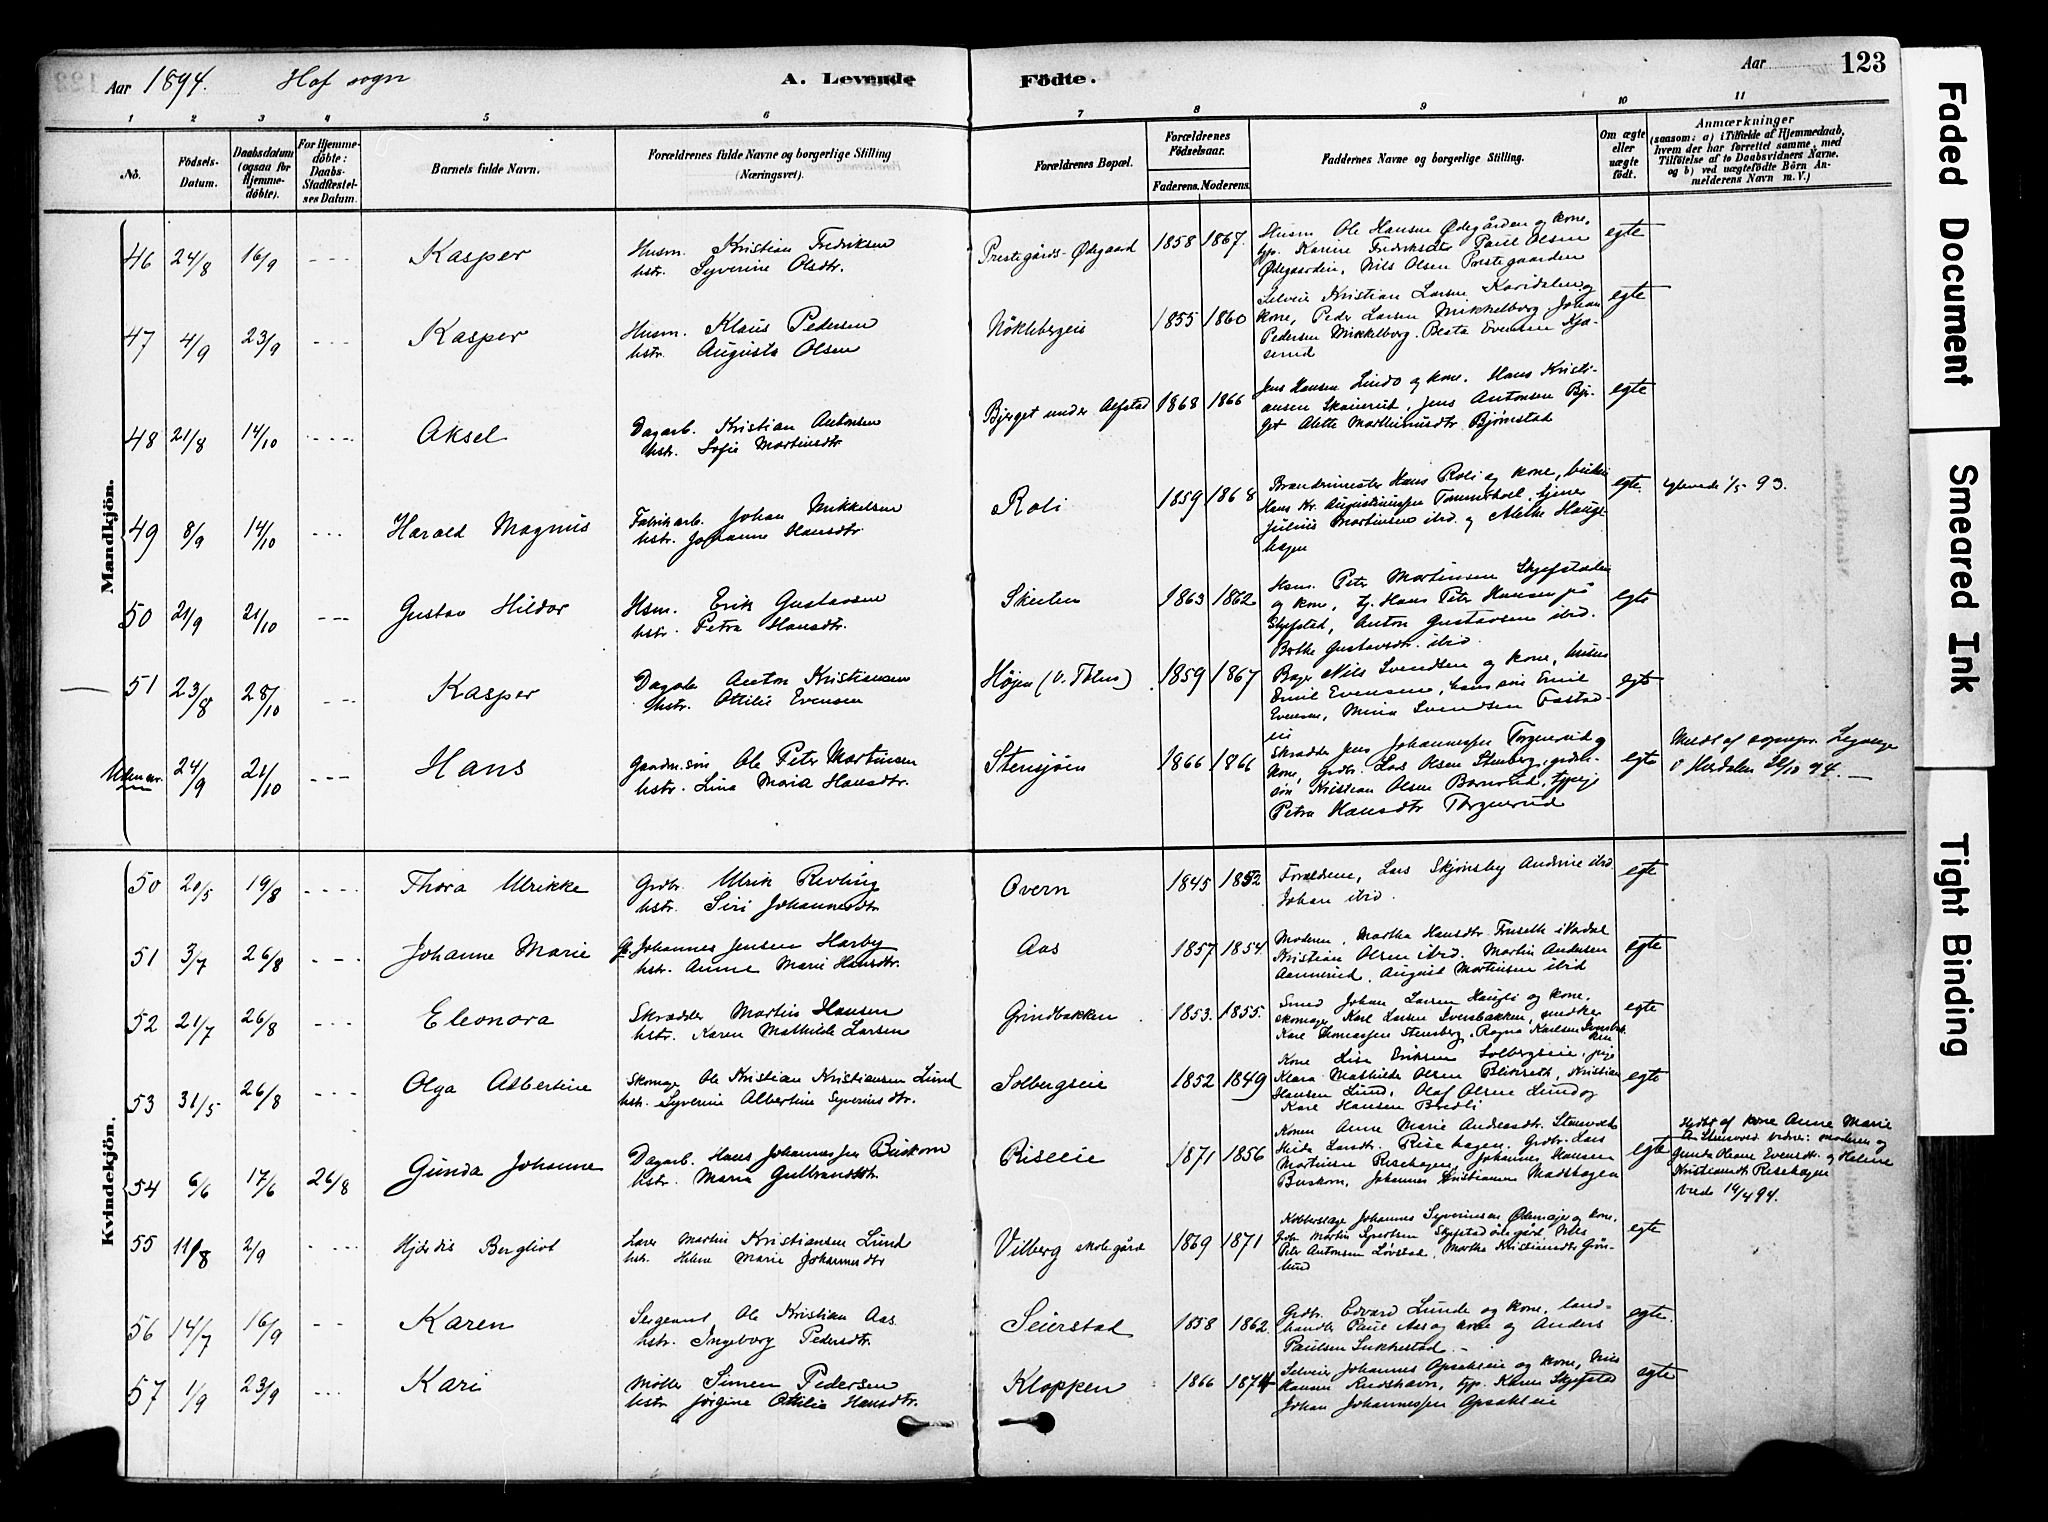 Aar 1894. Hof sogn
A. Levende Födte.
Aar 123
1 2 3 4 5 6 7 8 9 10 11
No.
Födsels-Datum.
Daabsdatum (ogsaa for Hjemmedöbte).
For Hjemmedöbte: Daabs-Stadfæstelses Datum.
Barnets fulde Navn.
Forældrenes fulde Navne og borgerlige Stilling (Næringsvei).
Forældrenes Bopæl.
Forældrenes Födselsaar.
Faderens. Moderens.
Faddernes Navne og borgerlige Stilling.
Om ægte eller uægte födt.
Anmærkninger
(saasom: a) i Tilfælde af Hjemmedaab, hvem der har forrettet samme, med Tilföielse af to Daabsvidners Navne, og b) ved uægtefödte Börn Anmelderens Navn m. V.)
Mandkjön.
46 24/8 16/9 - - - Kasper
Husm. Kristian Fredriksen
hstr. Syverine Olsdtr.
Prestegårds-Ødegaard 1858 1867.
Husm. Ole Hansen Ødegården og kone,
typ. Karine Fredriksdtr Paul Olsen
Ødegaarden, Nils Olsen Prestegaarden
egte
47 4/9 23/9 - - - Kasper
Husm. Klaus Pedersen
hstr. Augusta Olsen
Nøklebergeie 1855 1860
Selveier Kristian Larsen Karidalen og
kone, Peder Larsen Mikkelborg Johan
Pedersen Mikkelborg. Beata Evensen
serud
egte
48 21/8 14/10 - - - Aksel
Dagarb. Kristian Antonsen
hstr. Sofie Martinsdtr
Bjerget under Alfstad 1868 1866
Jens Hansen Lindo og kone. Hans Kristi-
ansen Skaierud, Jens Antonsen Bjer-
get Alette Marthinusdtr Bjørnstad
egte
49 8/9 14/10 - - - Harald Magnus
Fabrikarb. Johan Mikkelsen
hstr. Johanne Hansdtr
Roli 1859 1868
Brandmester Hans Roli og kone,
Hans Kr. Augustinussen Tømmerhol. tjener
Julius Martinsen ibid. og Alette Haugs-
hagen
egte. egtevede 1/5 93.
50 21/9 21/10 - - - Gustav Hildor
Hsm. Erik Gustavsen
hstr. Petra Hansdtr.
1863 1862
Hsm. Peter Martinsen Skjefstaden
og kone, tj. Hans Peter Hansen på
Skjefstad, Anton Gustavsen ibid.
Gustavsdtr. ibid.
egte
51 23/8 28/10 - - - Kasper
Dagarb Anton Kristiansen
hstr. Ottilie Evensen
1859 1867
Bager Nils Svendsen og kone,
Emil Evensen, Emil
Evensen, Mina Svendsen Fastad-
eie
egte
Uden nr. 24/9 21/10 Hans
Gaardm.søn Ole Peter Martinsen
hstr. Lina Maria Hansdtr.
Stensjøen 1866 1866
Skrædder Jens Johannessen Torgunrud og
kone, Grdbr. Lars Olsen Stenberg,
søn Kristian Olsen Bonrud, typige
Petra Hansdtr Torgunrud
egte
Meldt af sognepr.
v Verdalen 22/10 94. —
Kvindekjön.
50 20/5 19/8 - - - - Thora Ulrikke
Grdbr. Ulrik Revling
hstr. Siri Johannesdtr
Overn 1845 1852
Forældrene, Lars Skjønsby Andrine ibid
Johan ibid.
egte
51 3/7 26/8 - - - Johanne Marie
Johannes Jensen Harby
hstr. Anne Marie Hansdtr.
Aas 1857 1854.
Moderen, Martha Hansdtr. Fruseth i Vardal
Kristian Olsen ibid. Martin Andersen
Aannerud, August Martinsen ibid
egte
52 21/7 26/8 - - - Eleonora
Skrædder Martin Hansen
hstr. Karen Mathilde Larsen
Grindbakken 1853. 1855.
Smed Johan Larsen Haugli og kone,
skomager Karl Larsen Iversbakken, snedker
Karl Thomassen Stensberg, Ragna Karlsen Iversbak-
ken
egte
53 31/5 26/8 - - - Olga Albertine
Skomager Ole Kristian Kristiansen Lund
hstr. Syverine Albertine Syverinsdtr.
Solbergseie 1852 1849
Kone Lise Eriksen Solbergseie, pige
Klara Mathilde Olsen Blikseth, Kristian
Hansen Lund, Olaf Olsen Lund og
Karl Hansen Bredli
egte
54 6/6 17/6 26/8 Gunda Johanne
Dagarb. Hans Johannessen Buskorn
hstr. Maria Gulbrandsdtr
Riseeie 1871 1856
Konen Anne Marie Andreasdtr.
Larsdtr. Rise hagen. Grdbr. Lars
Martinsen Risehagen Johannes Hansen
Buskorn, Johannes Kristiansen Madshagen
egte
Hjdbt af kone Anne Marie
vidner: moderen og
Gunda Oleane Evensdtr. og Helene
Kristiansdtr Risehagen
viede 19/4 94.
55 11/8 2/9 - - - Hjørdis Bergliot
Lærer Martin Kristiansen Lund
hstr. Helene Marie Johannesdtr
Vilberg skolegård 1869 1871
Kobberslager Johannes Syverinsen og kone,
Grdbr Martin Syvertsen Skjefstad Nils
Peter Antonsen Løvstad, Martha Kristiansdtr Grøn-
lund
egte
56 14/7 16/9 - - Karen
Sergeant Ole Kristian Aas
hstr. Ingeborg Pedersdtr.
Seierstad 1858 1862
Grdbr. Edvard Lunde og kone, land-
handler Paul Aas og kone og Anders
Paulsen Sukkestad —
egte.
57 1/9 23/9 - - - Kari
Møller Simen Pedersen
hstr Jørgine Ottilia Hansdtr.
Kloppen 1866 1874
Selveier Johannes Apsahleie og kone, Nils
Hansen Rudshavn, typ. Karen Skjefstad
Johan Johannessen Apsahleie
egte
Faded Document
Smeared Ink
Tight Binding